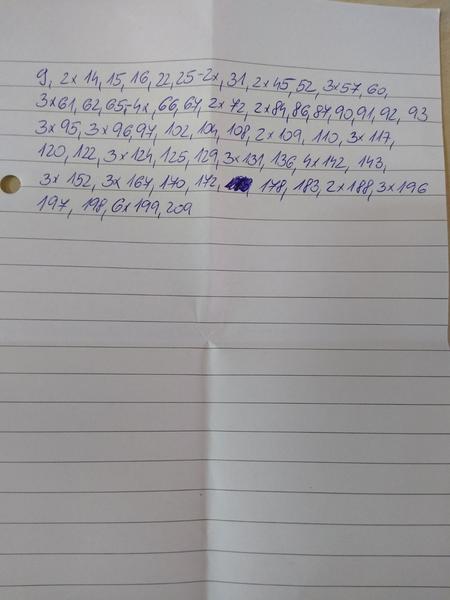 9, 2x14, 15, 16, 22, 25-2x, 31, 2x45, 52, 3x57, 60,
3x61, 62, 65-4x, 66, 67, 2x72, 2x84, 86, 87, 90, 91, 92, 93
3x95, 3x96, 97, 102, 104, 108, 2x109, 110, 3x117,
120, 122, 3x124, 125, 129, 3x131, 136, 4x142, 143,
3x152, 3x167, 170, 172, 178, 183, 2x188, 3x196
197, 198, 6x199, 209